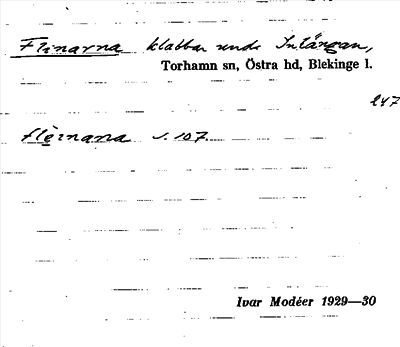 Flinarna klabbar unde Inlängan,
Torhamn sn, Östra hd, Blekinge l.
247
flèɪnana s. 107.
Ivar Modéer 1929—30